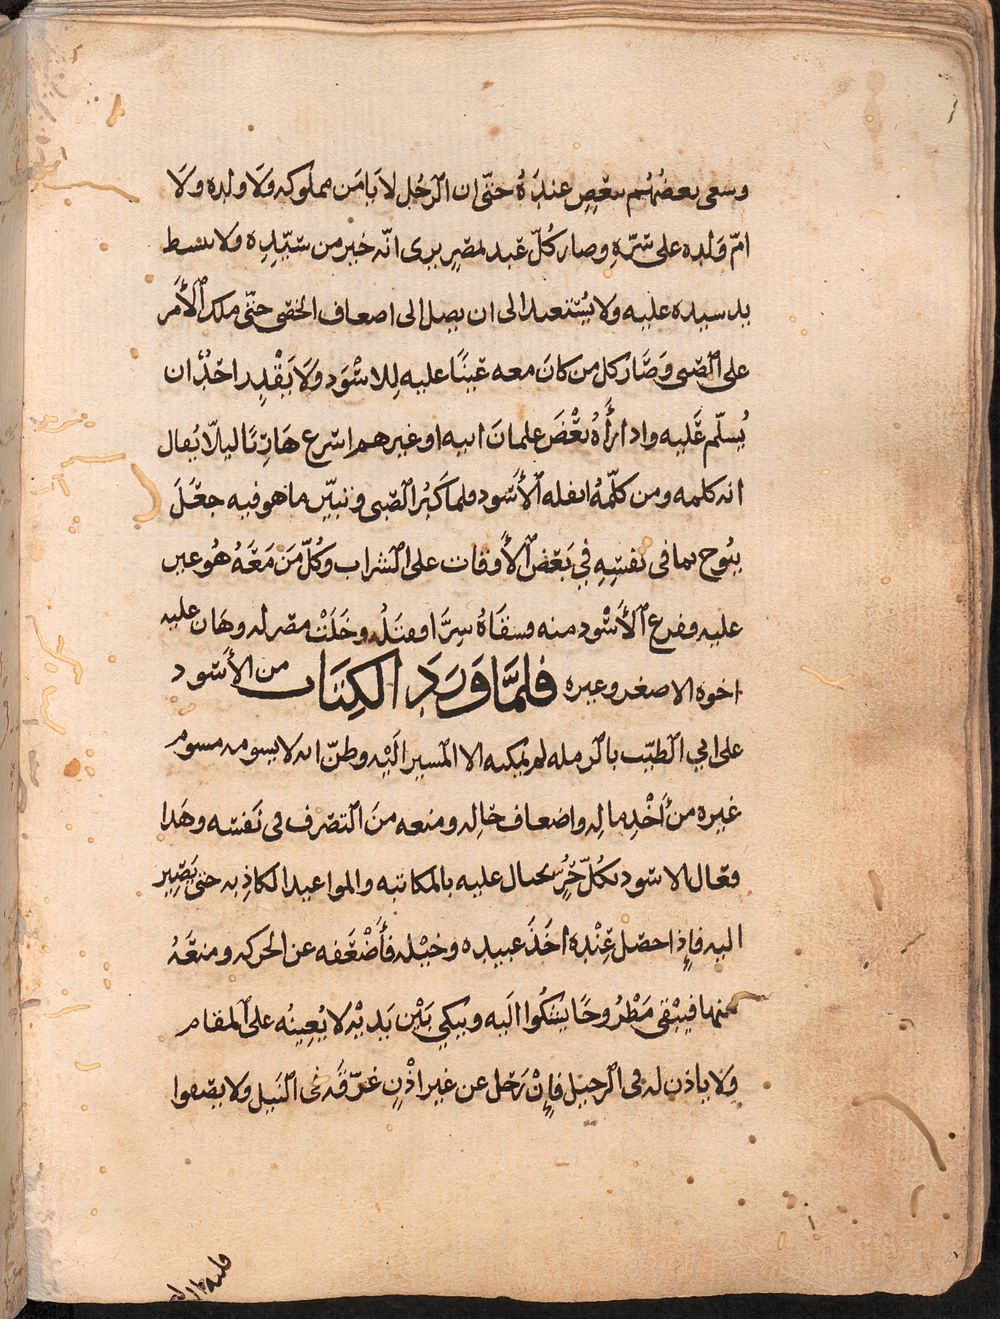 وسعى بعضهم ببعض عنده حتى ان الرجل لا يامن مملوكه ولا ولده ولا
امّ ولده على سرّه وصار كلّ عبد بمصر يرى انّه خير من سيّده ولا يبسط
يد سيده عليه ولا يستبعد الى ان يصل الى اضعاف الخصي حتّى ملك الأمر
على الصبي وصار كل من كان معه عينًا عليه للاسود ولا يقدر احدٌ ان
يُسلّم عليه واذا رأه بعض غلمان ابيه او غيرهم اسرع هاربًا ليلا يقال
انه كلمه ومن كلّمه اتلفه الأسود فلما كبر الصبى وتبيّن ما هو فيه جعل
يبوح بما فى نفسه في بعض الأوقات على الشراب وكلّ من معه هو عين
عليه وفزع الأسود منه وسقاه سرًّا فقتله وخلت مصر له وهان عليه
اخوه الاصغر وغيره فلمّا ورد الكتاب من الأسود
على ابي الطيّب بالرمله لم يمكنه الا المسير اليه وظنّ انه لا يسومه مسوم
غيره من أخذ ماله واضعاف حاله ومنعه من التصرف فى نفسه وهذا
فعال الاسود بكلّ حرٍّ يحتال عليه بالمكاتبه والمواعيد الكاذبه حتى يصير
اليه فإذا حصل عنده اخذ عبيده وخيله فأضعفه عن الحركه ومنعه
منها فيبقى مطروحًا يشكوا اليه ويبكي بين يديه لا يعينه على المقام
ولا ياذن له فى الرحيل فإن رحل عن غير اذنٍ غرّقه فى النيل ولا يصفوا